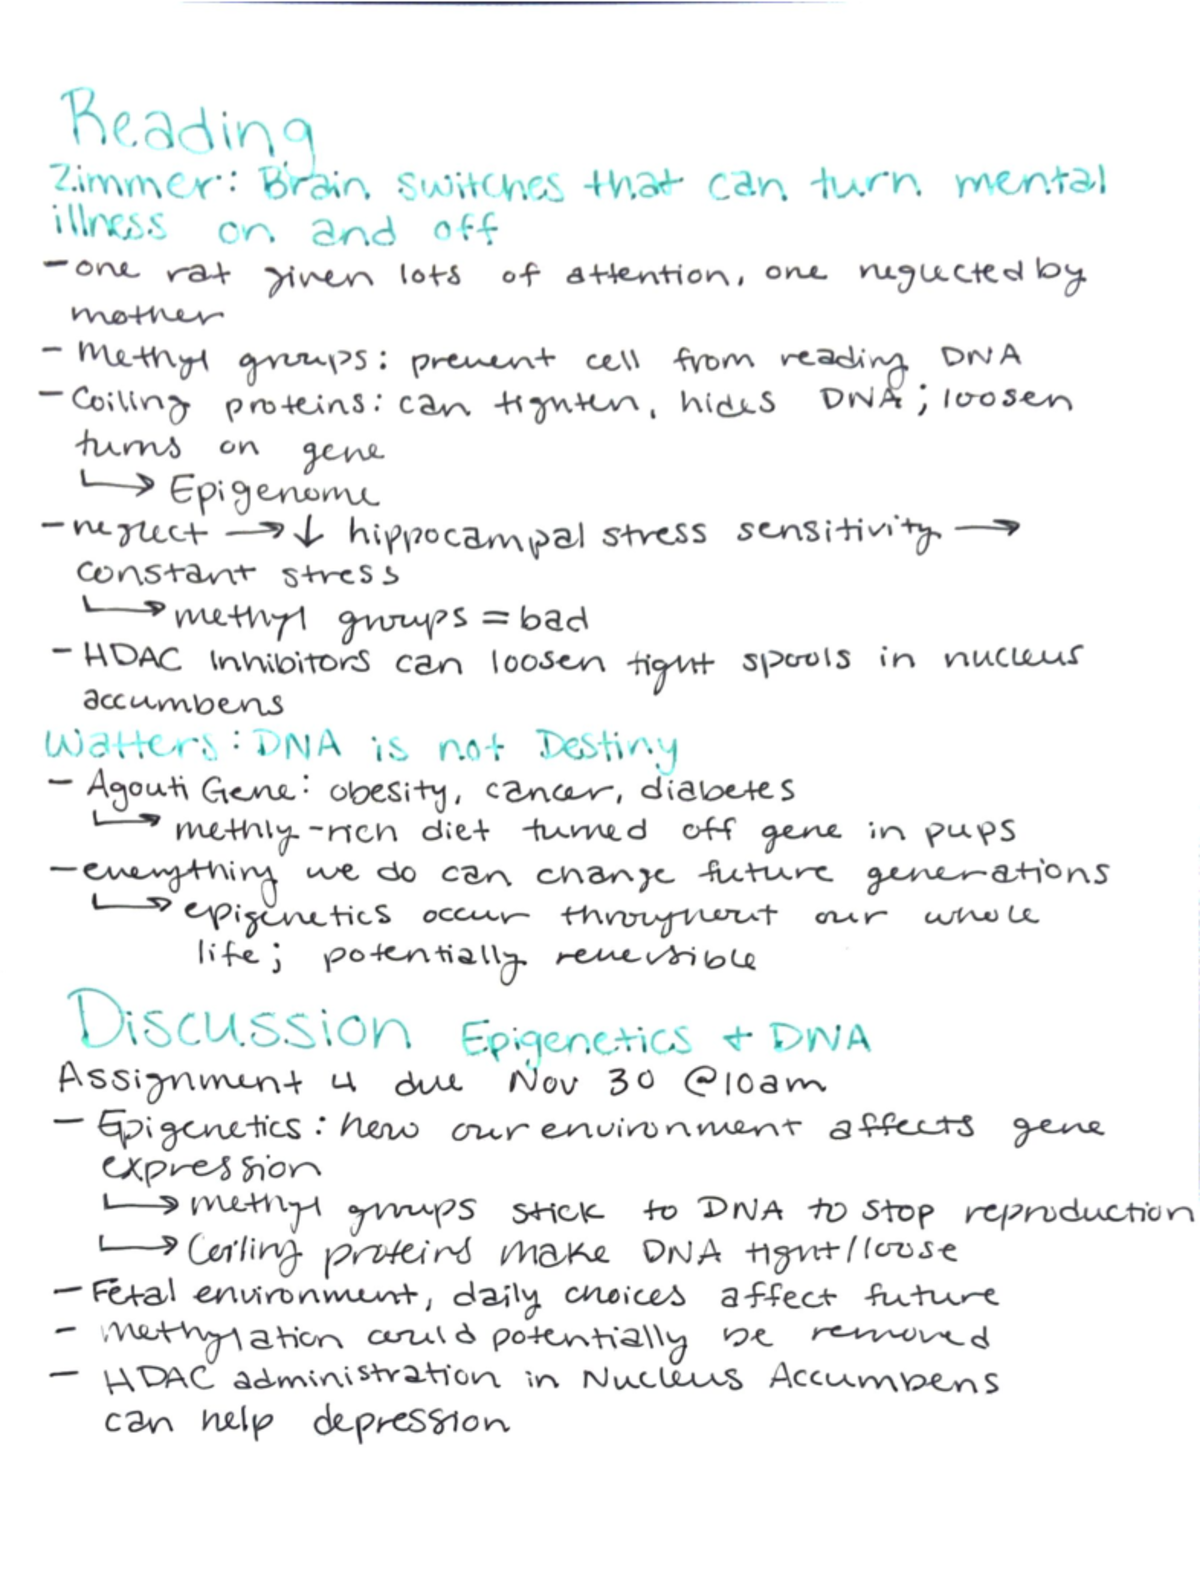 Reading
Zimmer: Brain switches that can turn mental
illness on and off
- one rat given lots of attention, one neglected by
mother
- Methyl groups: prevent cell from reading DNA
- Coiling proteins: can tighten, hides DNA; loosen
turns on gene
↳ Epigenome
- neglect → ↓ hippocampal stress sensitivity →
constant stress
↳ methyl groups = bad
- HDAC Inhibitors can loosen tight spools in nucleus
accumbens
Watters: DNA is not Destiny
- Agouti Gene: obesity, cancer, diabetes
↳ methly-rich diet turned off gene in pups
- everything we do can change future generations
↳ epigenetics occur throughout our whole
life; potentially reversible
Discussion Epigenetics + DNA
Assignment 4 due Nov 30 @10am
- Epigenetics: how our environment affects gene
expression
↳ methyl groups stick to DNA to stop reproduction
↳ Coiling proteins make DNA tight/loose
- Fetal environment, daily choices affect future
- Methylation could potentially be removed
- HDAC administration in Nucleus Accumbens
can help depression